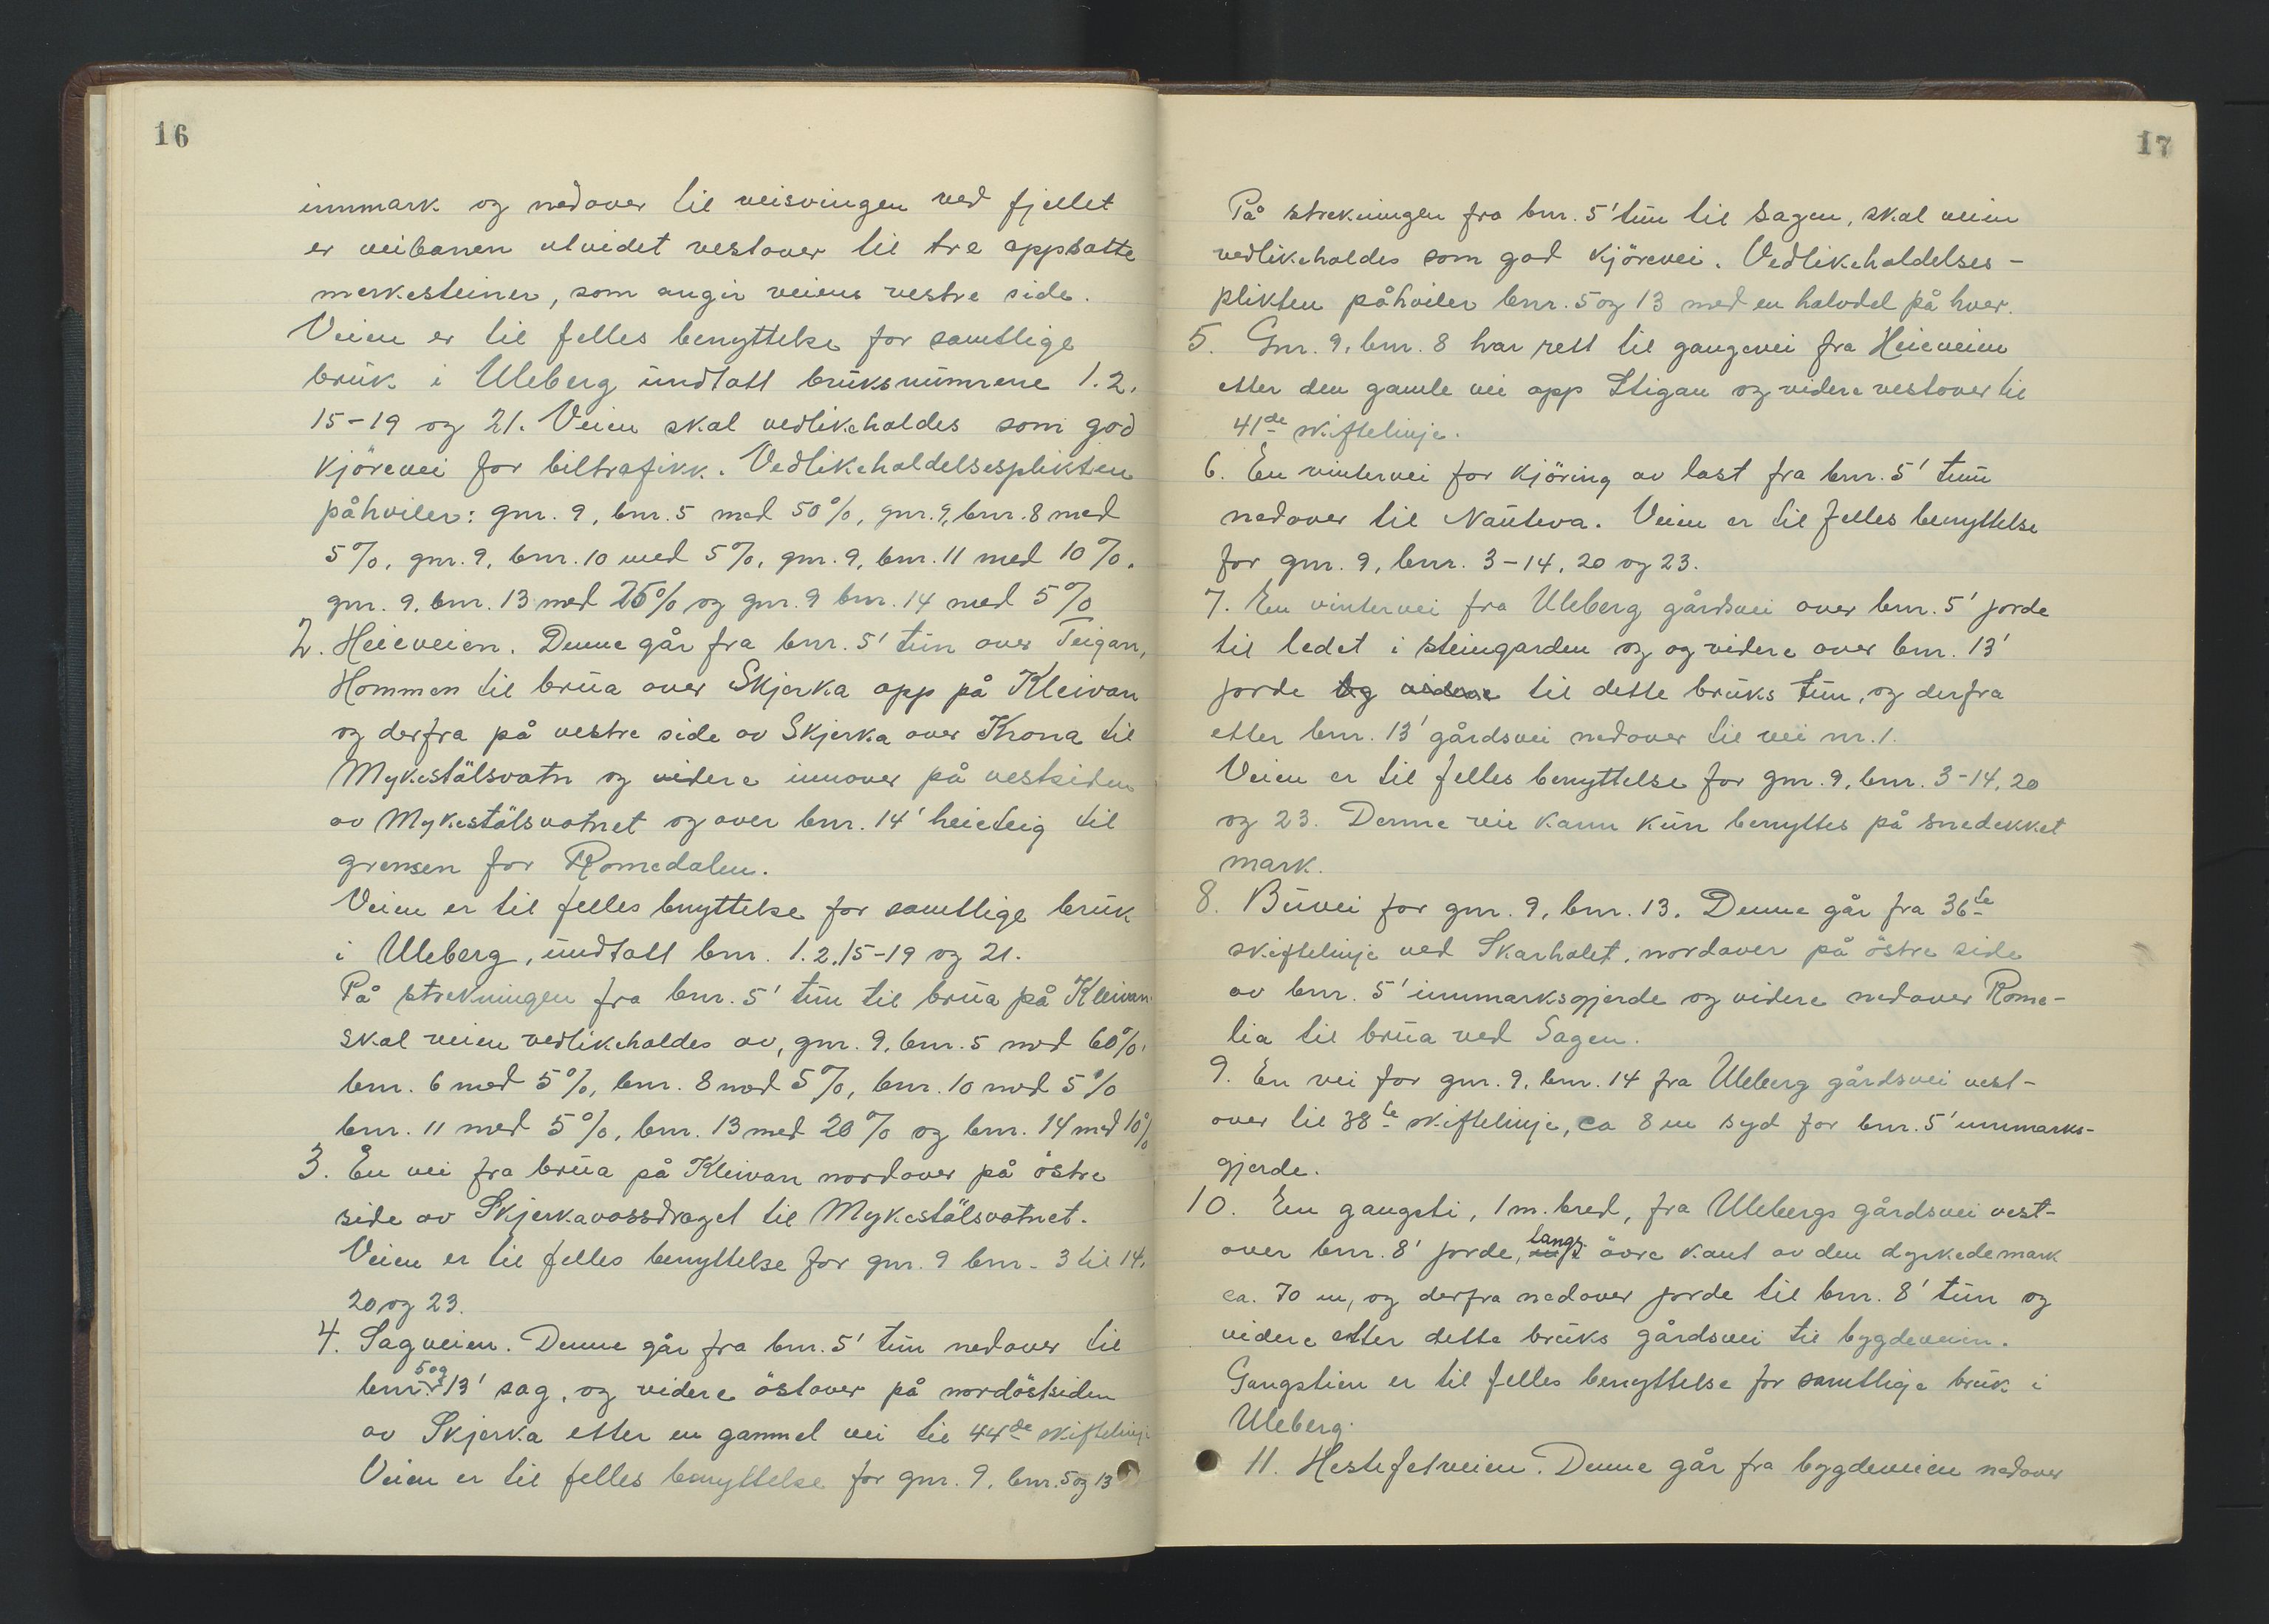 16
innmark og nedover til veisvingen ved fjellet
er veibanen utvidet vestover til tre oppsatte
merkesteiner, som angir veiens vestre side.
Veien er til felles benyttelse for samtlige
bruk i Uleberg undtatt bruksnumrene 1.2.
15-19 og 21. Veien skal vedlikeholdes som god
kjörevei for biltrafikk. Vedlikeholdelsesplikten
påhviler: gnr. 9, bnr. 5 med 50%, gnr. 9, bnr. 8 med
5%, gnr. 9, bnr. 10 med 5%, gnr. 9, bnr. 11 med 10%.
gnr. 9. bnr. 13 med 25% og gnr. 9 bnr. 14 med 5%
2. Heieveien. Denne går fra bnr. 5' tun over Teigan,
Hommen til brua over Skjerka opp på Kleivan
og derfra på vestre side av Skjerka over Krona til
Mykestölsvatn og videre innover på vestsiden
av Mykestölsvatnet og over bnr. 14' heieteig til
grensen for Romedalen.
Veien er til felles bnyttelse for samtlige bruk
i Uleberg, undtatt bnr. 1.2.15-19 og 21.
På strekningen fra bnr. 5' tun til brua på Kleivan
skal veien vedlikeholdes av, gnr. 9. bnr. 5 med 60%.
bnr. 6 med 5%, bnr. 8 med 5%, bnr. 10 med 5%
bnr. 11 med 5%, bnr. 13 med 20% og bnr. 14 med 10%
3. En vei fra brua på Kleivan nordover på östre
side av Skjerkavassdraget til Mykestölsvatnet.
Veien er til felles benyttelse for gnr. 9 bnr. 3 til 14.
20 og 23.
4. Sagveien. Denne går fra bnr. 5' tun nedover til
bnr. 5 og 13' sag, og videre östover på nordöstsiden
av Skjerka etter en gammel vei til 44de skiftelinje
Veien er til felles benyttelse for gnr. 9. bnr. 5 og 13
17
På strekningen fra bnr. 5' tun til Sagen, skal veien
vedlikeholdes som god kjörevei. Vedlikeholdelses-
plikten påhviler bnr. 5 og 13 med en halvdel på hver.
5. Gnr. 9. bnr. 8 har rett til gangvei fra Heieveien
etter den gamle vei opp Stigan og videre vestover til
41de skiftelinje.
6. En vintervei for kjöring av last fra bnr. 5' tun
nedover til Nauteva. Veien er til felles benyttelse
for gnr. 9, bnr. 3-14, 20 og 23.
7. En vintervei fra Uleberg gårdsvei over bnr. 5' jorde
til ledet i steingarden og og videre over bnr. 13'
jorde og videre til dette bruks tun, og derfra
etter bnr. 13' gårdsvei nedover til vei nr. 1.
Veien er til felles benyttelse for gnr. 9, bnr. 3-14, 20
og 23. Denne vei kann kun benyttes på snedekket
mark.
8. Buvei for gnr. 9, bnr. 13. Denne går fra 36te
skiftelinje ved Skarholet, nordover på östre side
av bnr. 5' innmarksgjerde og videre nedover Rome-
lia til brua ved Sagen.
9. En vei for gnr. 9, bnr. 14 fra Uleberg gårdsvei vest-
over til 38te skiftelinje, ca 8 m syd for bnr. 5' innmarks-
gjerde.
10. En gangsti, 1 m. bred, fra Ulebergs gårdsvei vest-
over bnr. 8' jorde, langs övre kant av den dyrkede mark
ca. 70 m, og derfra nedover jorde til bnr. 8' tun og
videre etter dette bruks gårdsvei til bygdeveien.
Gangstien er til felles benyttelse for samtlige bruk i
Uleberg.
11. Hestefetveien. Denne går fra bygdeveien nedover